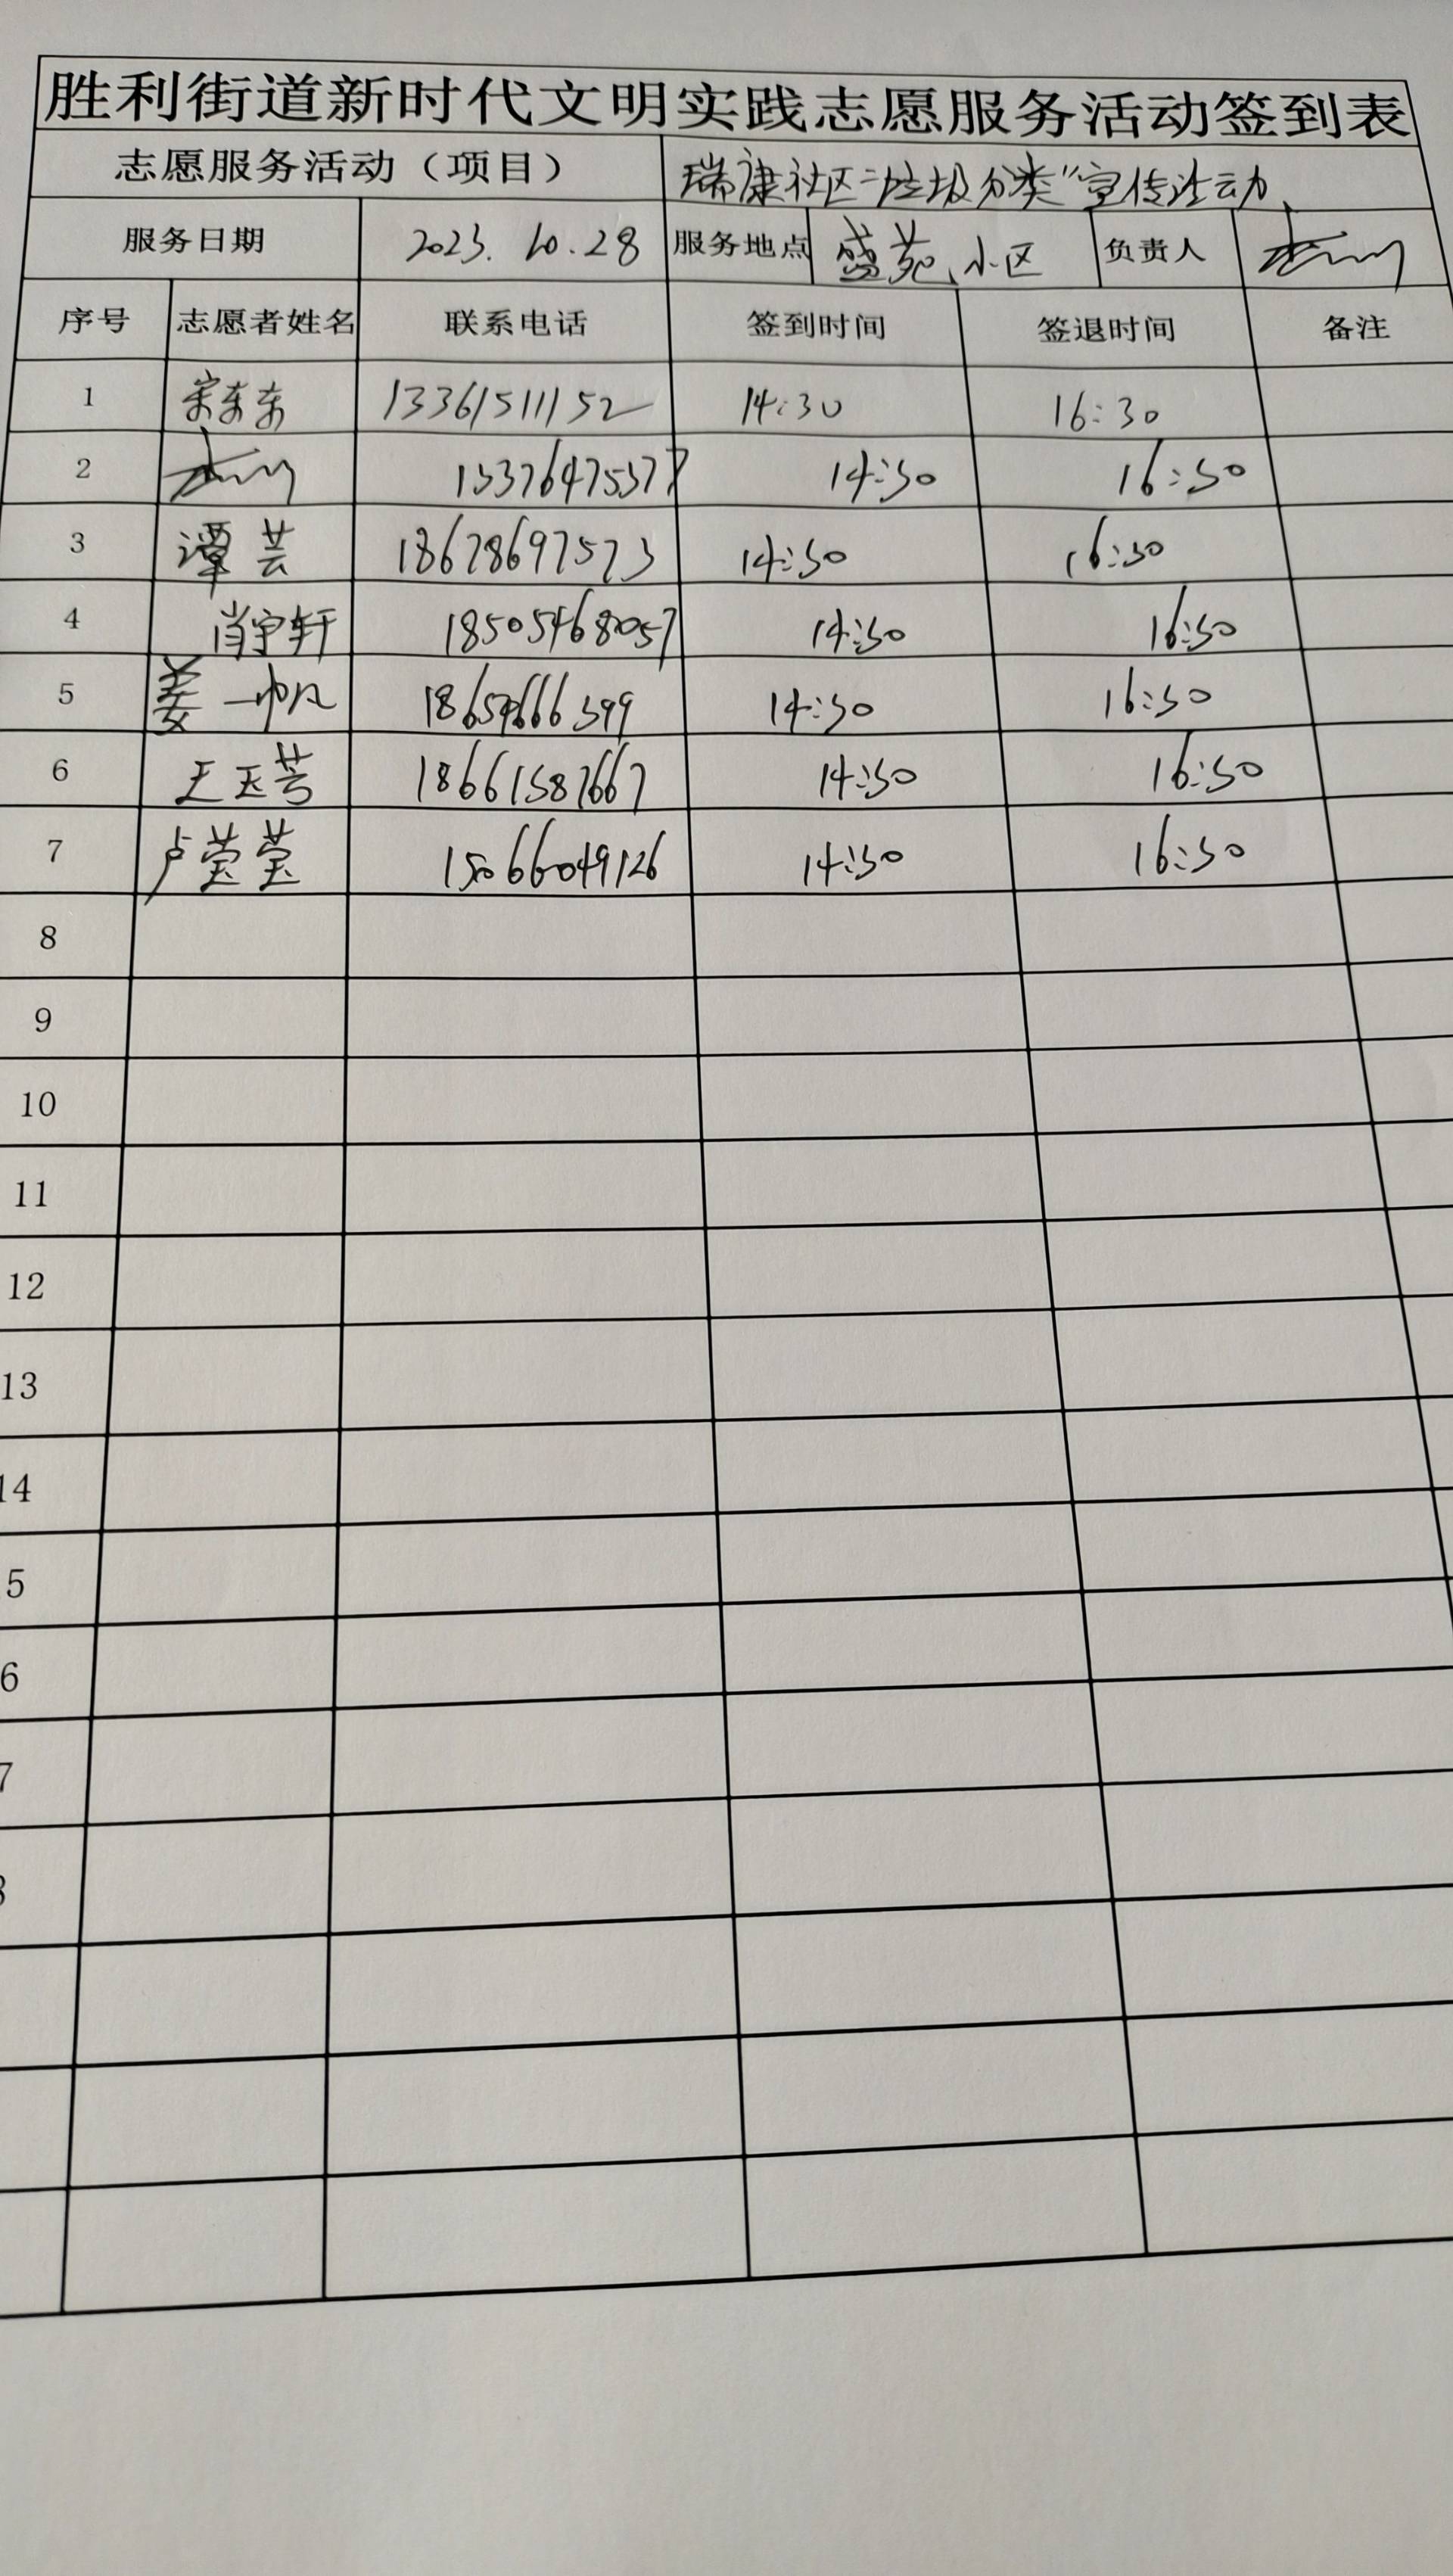 胜利街道新时代文明实践志愿服务活动签到表
志愿服务活动（项目） 瑞康社区"垃圾分类"宣传活动
服务日期 2023.10.28 服务地点 盛苑小区 负责人
序号 志愿者姓名 联系电话 签到时间 签退时间 备注
1 宋东东 13361511152 14:30 16:30
2 13376475377 14:30 16:30
3 谭芸 18678697573 14:30 16:30
4 肖宇轩 18505468057 14:30 16:30
5 姜一帆 14:30 16:30
6 王玉芳 18661387667 14:30 16:30
7 卢莹莹 15066049126 14:30 16:30
8
9
10
11
12
13
14
5
6
7
8